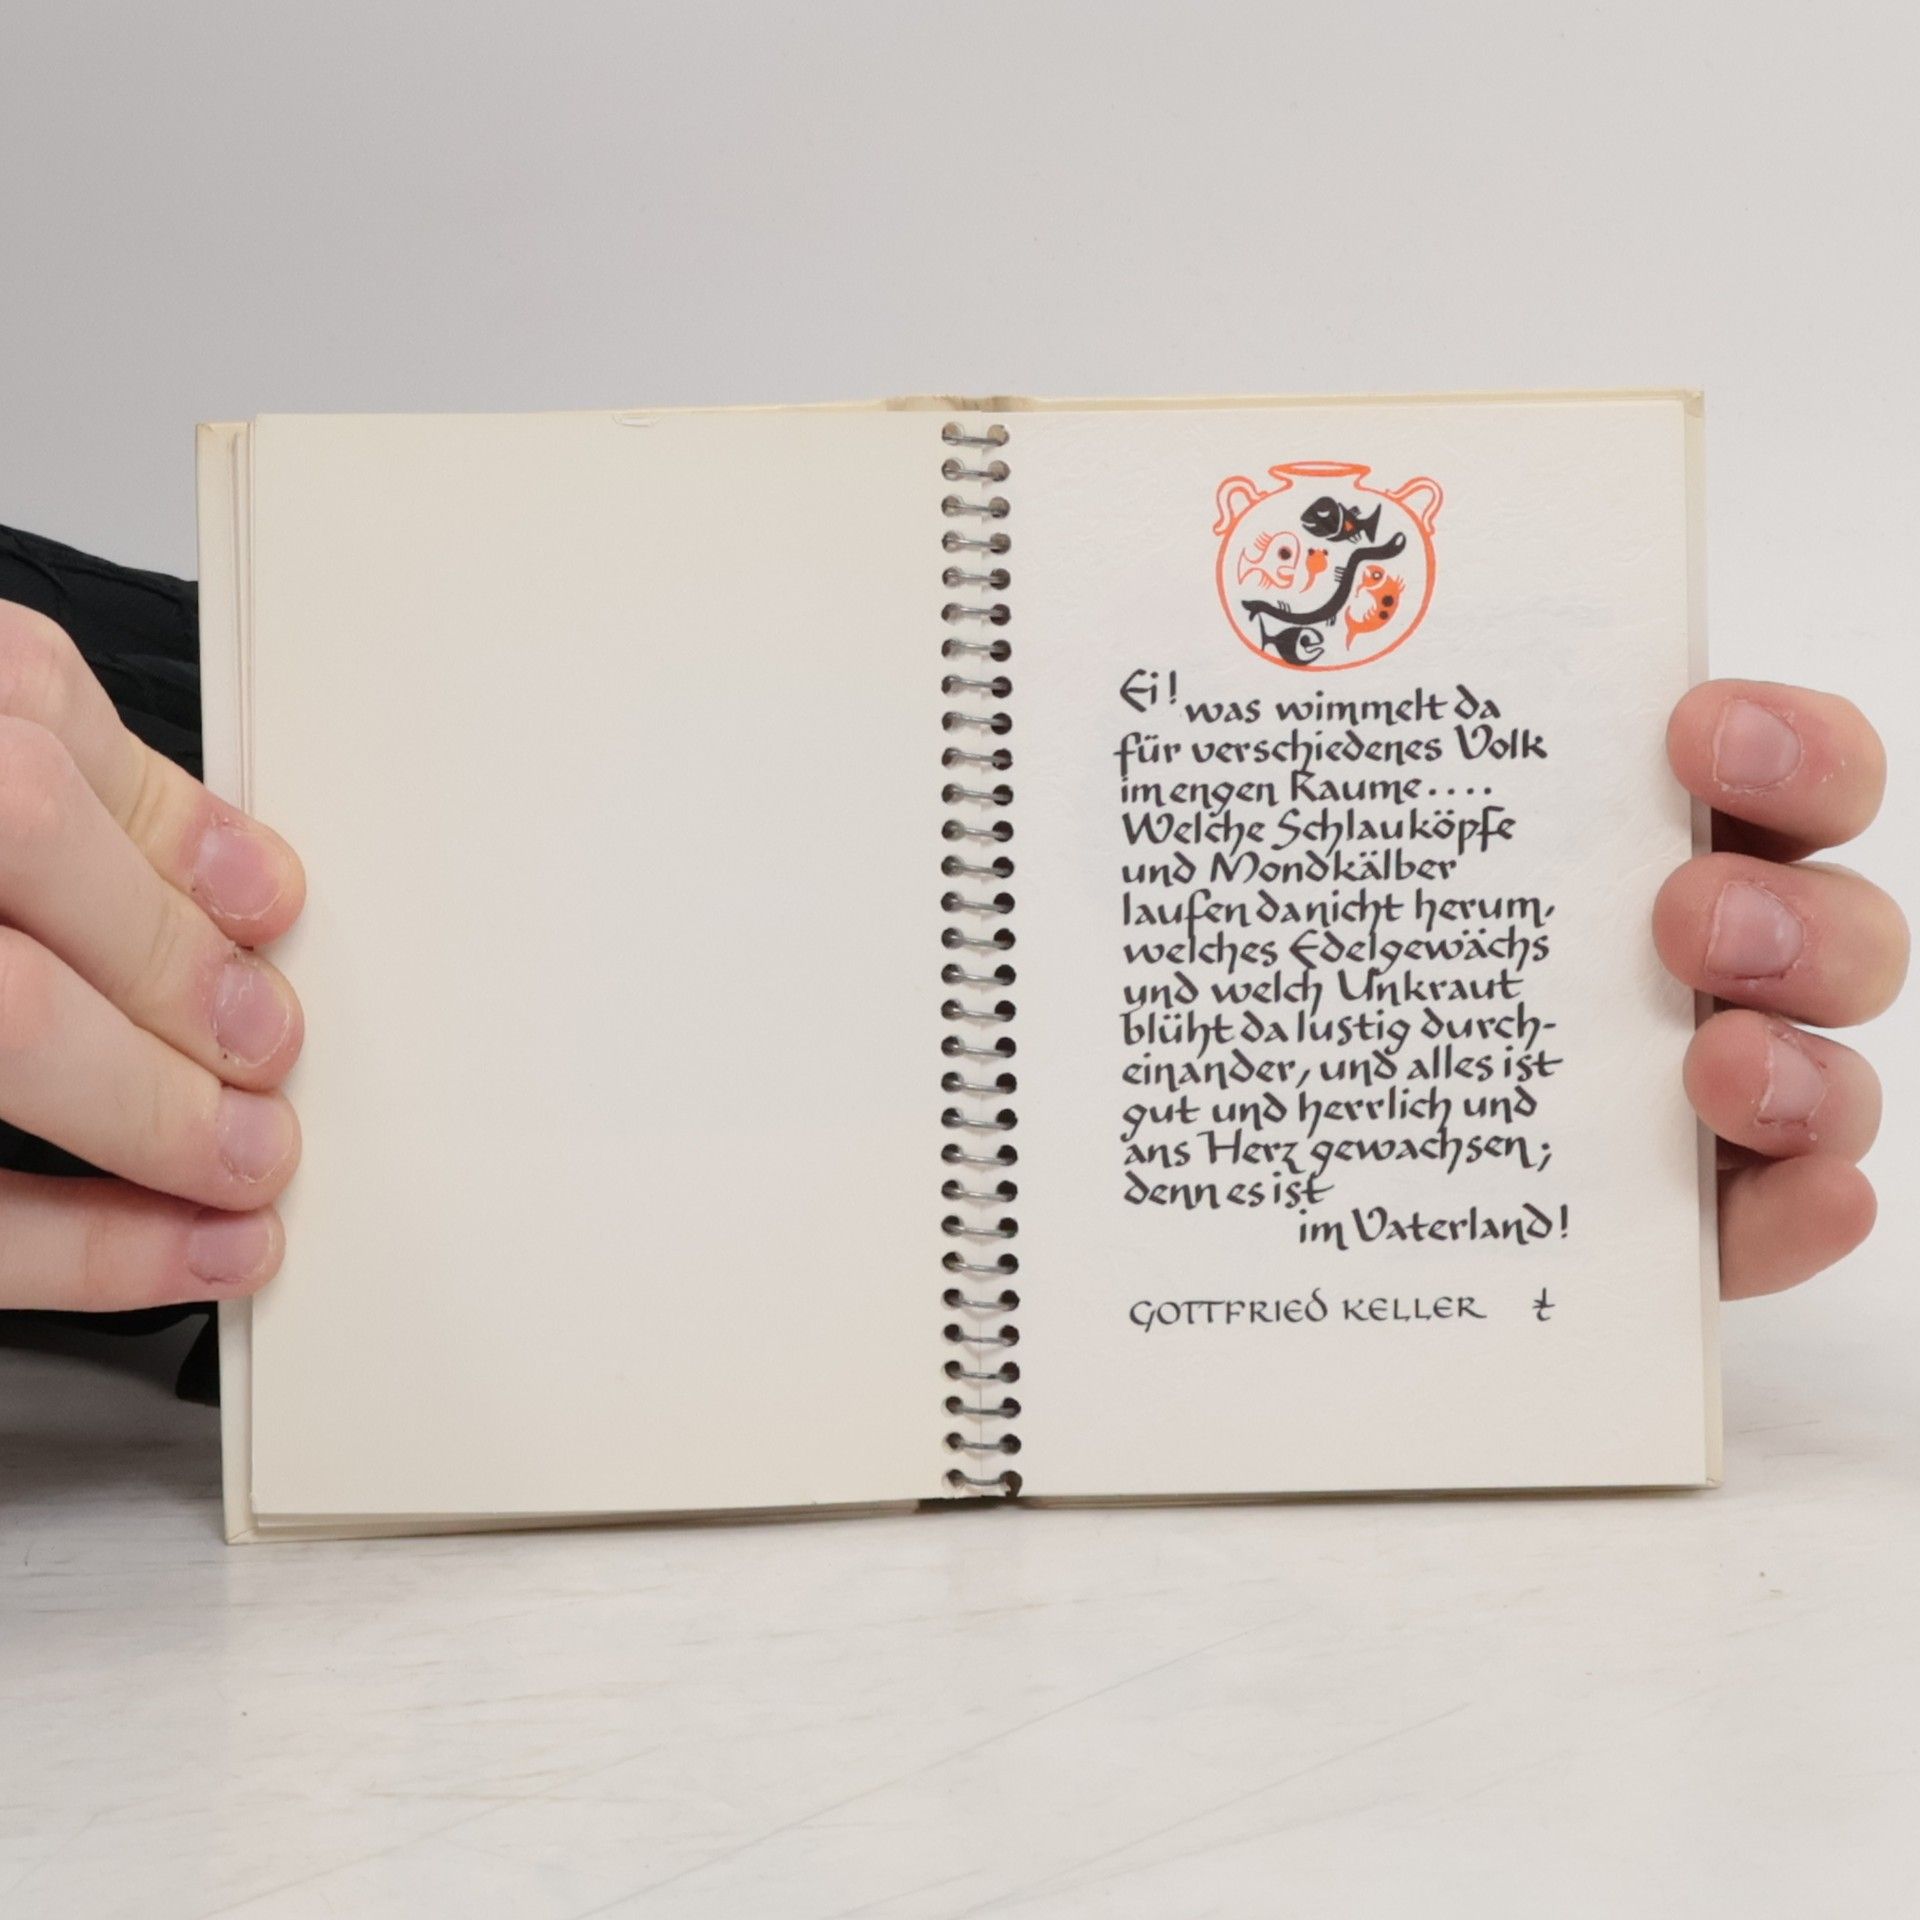 Ei! was wimmelt da
für verschiedenes Volk
im engen Raume....
Welche Schlauköpfe
und Mondkälber
laufen da nicht herum,
welches Edelgewächs
und welch Unkraut
blüht da lustig durch-
einander, und alles ist
gut und herrlich und
ans Herz gewachsen;
denn es ist
im Vaterland!
GOTTFRIED KELLER